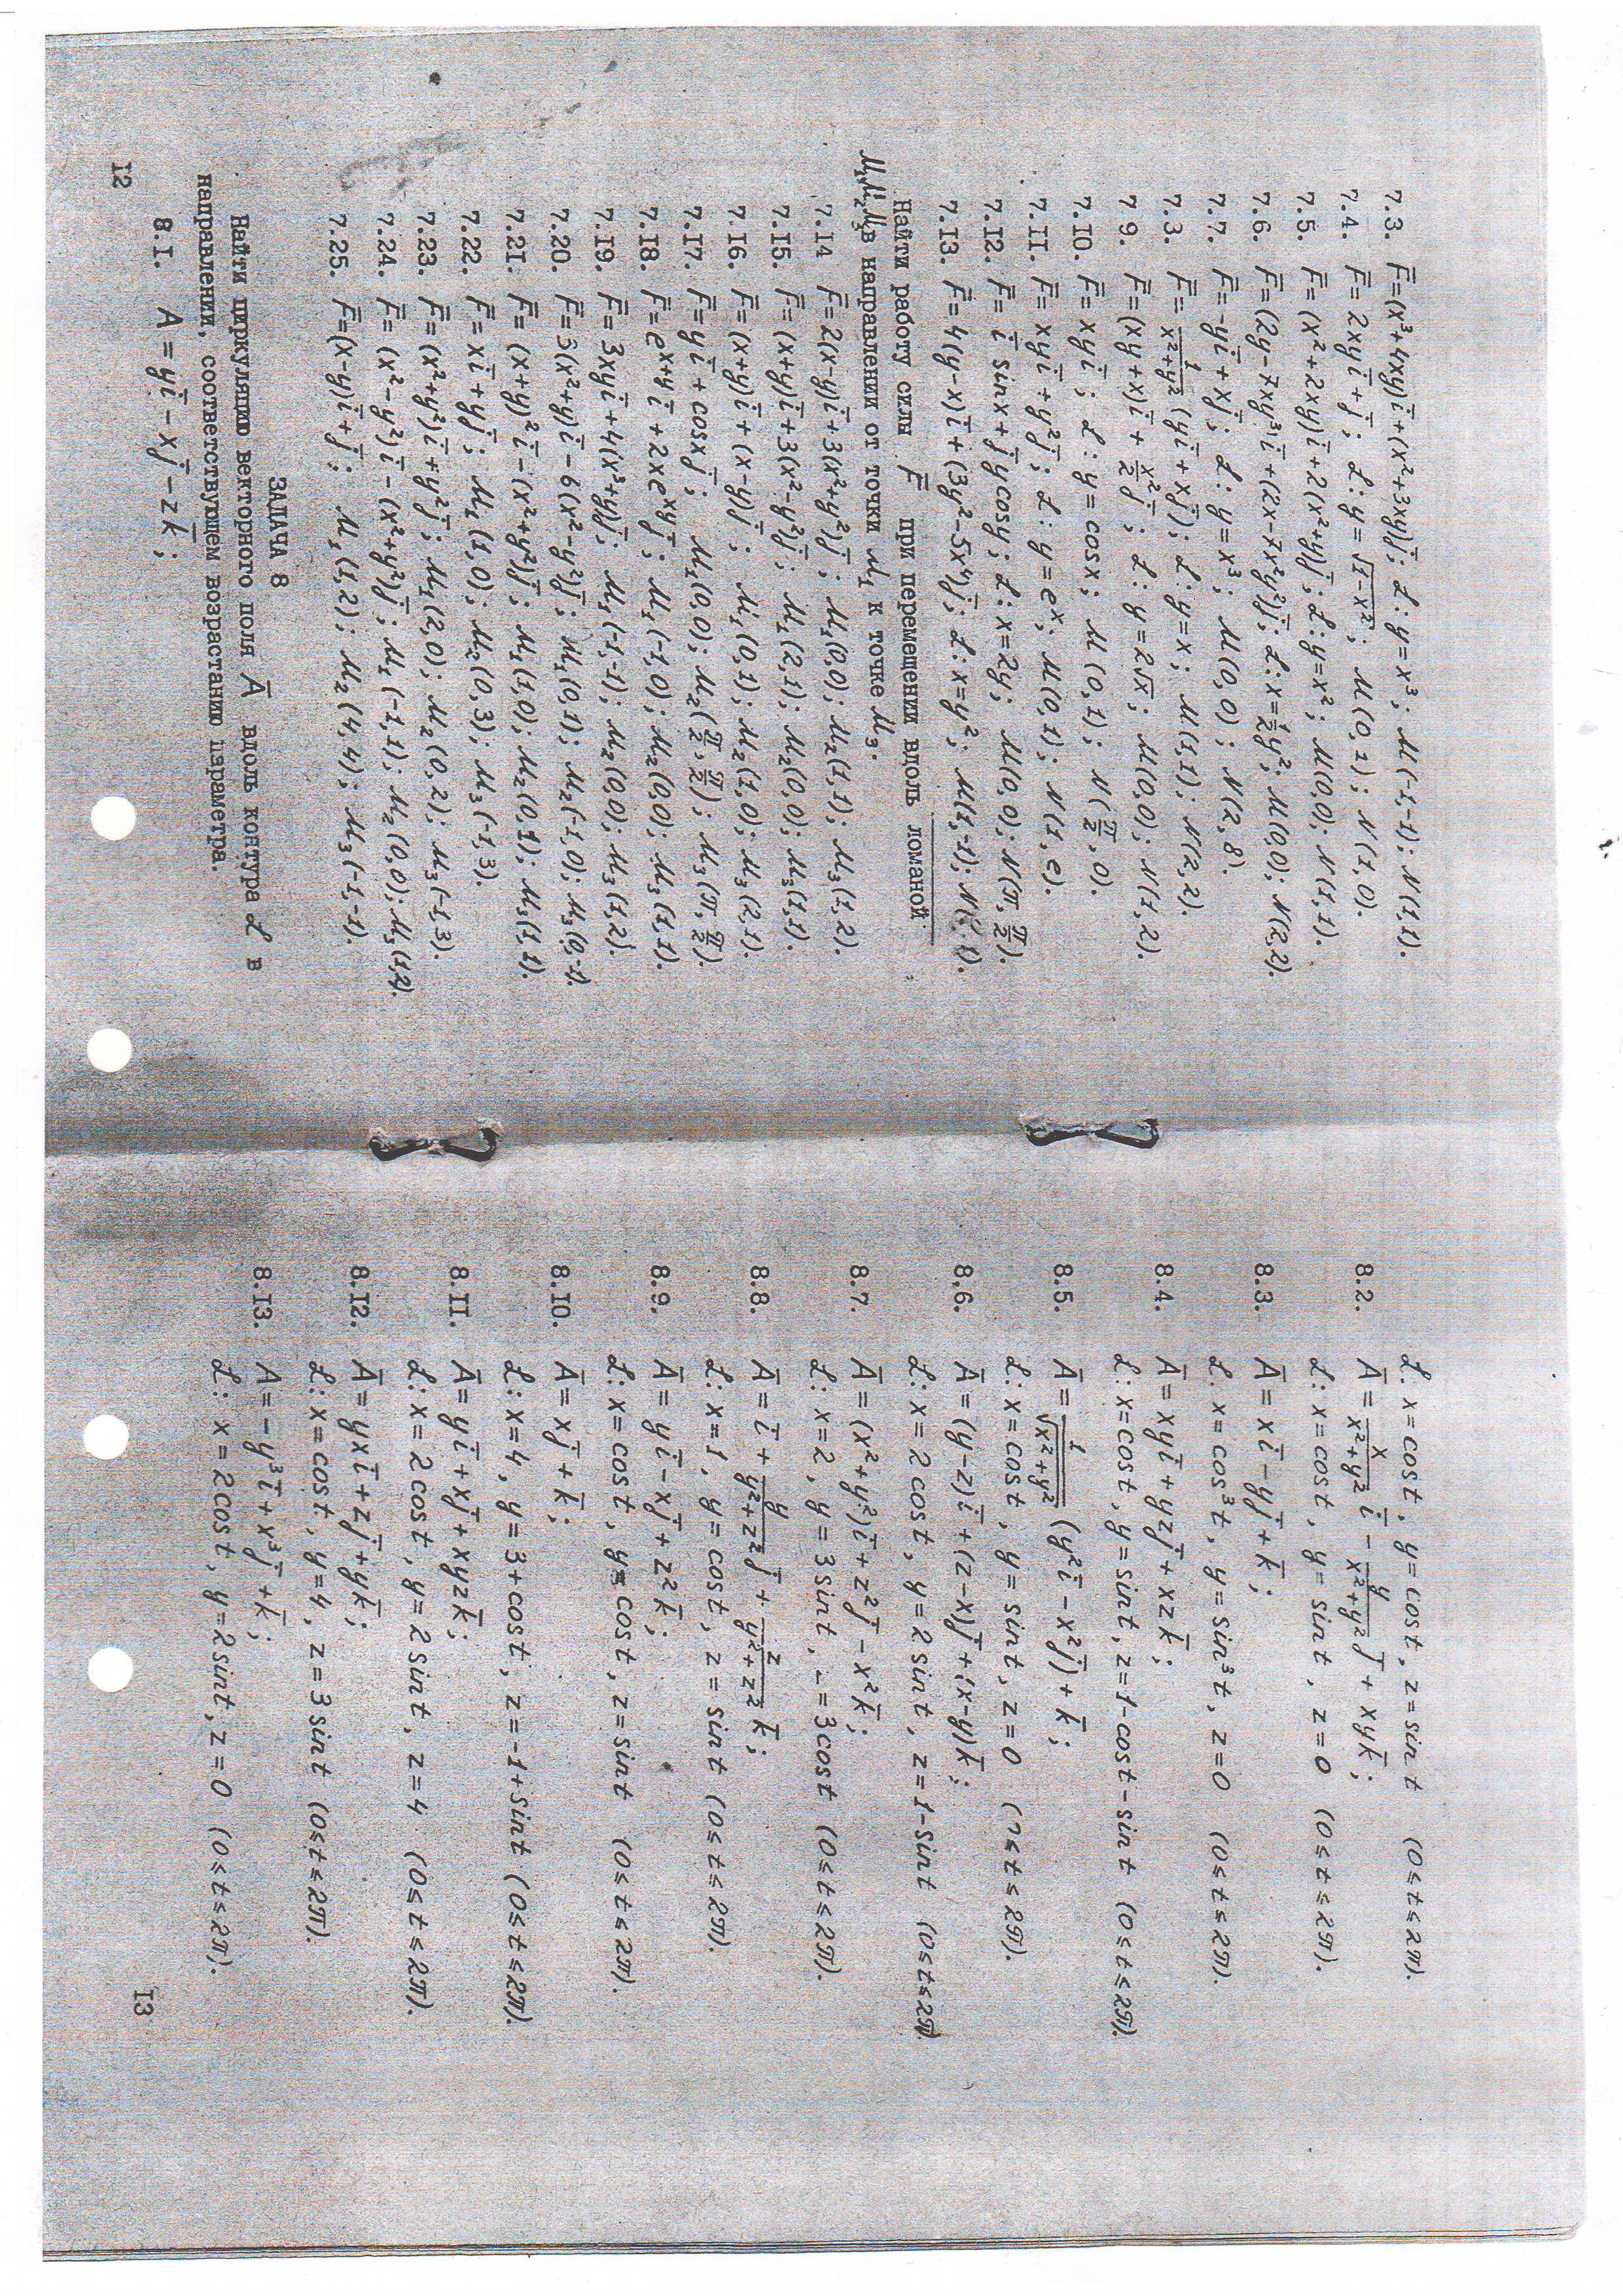 7.3. F̅=(x³+4xy)i̅+(x²+3xy)j̅; ℒ: y=x³; M(-1,-1); N(1,1).
7.4. F̅=2xyi̅+j̅; ℒ: y=√(1-x²); M(0,1); N(1,0).
7.5. F̅=(x²+2xy)i̅+2(x²+y)j̅; ℒ: y=x²; M(0,0); N(1,1).
7.6. F̅=(2y-7xy³)i̅+(2x-7x²y²)j̅; ℒ: x=½y²; M(0,0); N(2,2).
7.7. F̅=-yi̅+xj̅; ℒ: y=x³; M(0,0); N(2,8).
7.3. F̅=1/(x²+y²)(yi̅+xj̅); ℒ: y=x; M(1,1); N(2,2).
7.9. F̅=(xy+x)i̅+x²/2 j̅; ℒ: y=2√x; M(0,0); N(1,2).
7.10. F̅=xyi̅; ℒ: y=cosx; M(0,1); N(π/2,0).
7.II. F̅=xyi̅+y²j̅; ℒ: y=eˣ; M(0,1); N(1,e).
7.12. F̅=i̅ sinx+j̅ycosy; ℒ: x=2y; M(0,0); N(π,π/2).
7.13. F̅=4(y-x)i̅+(3y²-5x⁴)j̅; ℒ: x=y²; M(1,-1); N(1,1).
Найти работу силы F̅ при перемещении вдоль ломаной
M₁M₂M₃ в направлении от точки M₁ к точке M₃.
7.14 F̅=2(x-y)i̅+3(x²+y²)j̅; M₁(0,0); M₂(1,1); M₃(1,2).
7.15. F̅=(x+y)i̅+3(x²-y²)j̅; M₁(2,1); M₂(0,0); M₃(1,1).
7.16. F̅=(x+y)i̅+(x-y)j̅; M₁(0,1); M₂(1,0); M₃(2,1).
7.17. F̅=yi̅+cosxj̅; M₁(0,0); M₂(π/2,π/2); M₃(π,π/2).
7.18. F̅=eˣ⁺ʸi̅+2xeˣʸj̅; M₁(-1,0); M₂(0,0); M₃(1,1).
7.19. F̅=3xyi̅+4(x³+y)j̅; M₁(-1,-1); M₂(0,0); M₃(1,2).
7.20. F̅=3(x²+y)i̅-6(x²-y²)j̅; M₁(0,1); M₂(-1,0); M₃(0,-1).
7.21. F̅=(x+y)²i̅-(x²+y²)j̅; M₁(1,0); M₂(0,1); M₃(1,1).
7.22. F̅=xi̅+yj̅; M₁(1,0); M₂(0,3); M₃(-1,3).
7.23. F̅=(x²+y²)i̅+y²j̅; M₁(2,0); M₂(0,2); M₃(-1,3).
7.24. F̅=(x²-y²)i̅-(x²+y²)j̅; M₁(-1,1); M₂(0,0); M₃(1,2).
7.25. F̅=(x-y)i̅+j̅; M₁(1,2); M₂(4,4); M₃(-1,-1).
ЗАДАЧА 8
Найти циркуляцию векторного поля A̅ вдоль контура ℒ в
направлении, соответствующем возрастанию параметра.
8.I. A̅=yi̅-xj̅-zk̅;
I2
ℒ: x=cost, y=cost, z=sint (0≤t≤2π).
8.2. A̅=x/(x²+y²) i̅ - y/(x²+y²) j̅ + xyk̅;
ℒ: x=cost, y=sint, z=0 (0≤t≤2π).
8.3. A̅=xi̅-yj̅+k̅;
ℒ: x=cos³t, y=sin³t, z=0 (0≤t≤2π).
8.4. A̅=xyi̅+yzj̅+xzk̅;
ℒ: x=cost, y=sint, z=1-cost-sint (0≤t≤2π).
8.5. A̅=1/√(x²+y²) (y²i̅-x²j̅)+k̅;
ℒ: x=cost, y=sint, z=0 (0≤t≤2π).
8.6. A̅=(y-z)i̅+(z-x)j̅+(x-y)k̅;
ℒ: x=2cost, y=2sint, z=1-sint (0≤t≤2π).
8.7. A̅=(x²+y²)i̅+z²j̅-x²k̅;
ℒ: x=2, y=3sint, z=3cost (0≤t≤2π).
8.8. A̅=i̅+y/(y²+z²) j̅+z/(y²+z²) k̅;
ℒ: x=1, y=cost, z=sint (0≤t≤2π).
8.9. A̅=yi̅-xj̅+z²k̅;
ℒ: x=cost, y=cost, z=sint (0≤t≤2π).
8.IO. A̅=xj̅+k̅;
ℒ: x=4, y=3+cost, z=-1+sint (0≤t≤2π).
8.II. A̅=yi̅+xj̅+xyzk̅;
ℒ: x=2cost, y=2sint, z=4 (0≤t≤2π).
8.I2. A̅=yxi̅+zj̅+yk̅;
ℒ: x=cost, y=4, z=3sint (0≤t≤2π).
8.I3. A̅=-y³i̅+x³j̅+k̅;
ℒ: x=2cost, y=2sint, z=0 (0≤t≤2π).
I3